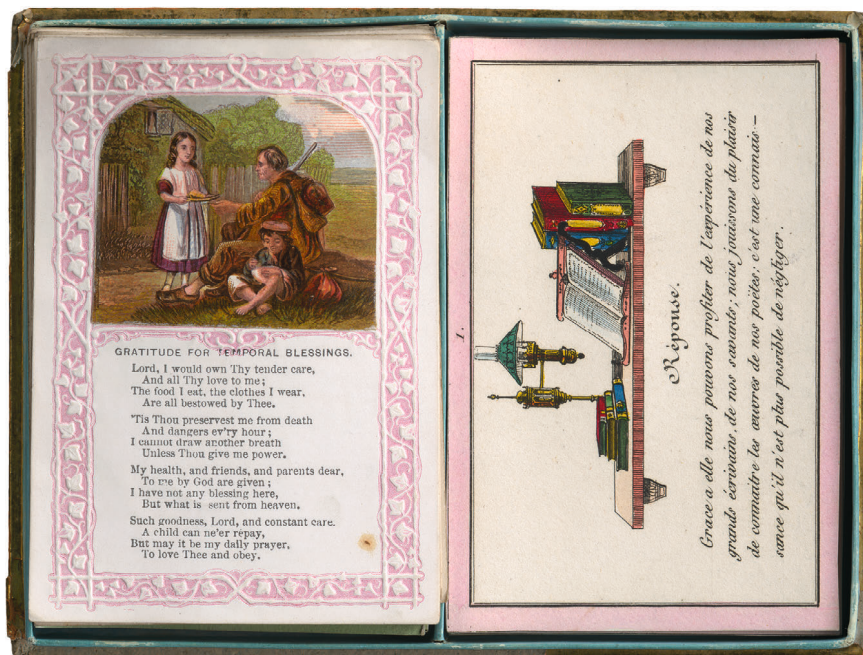 GRATITUDE FOR TEMPORAL BLESSINGS.
Lord, I would own Thy tender care,
And all Thy love to me;
The food I eat, the clothes I wear,
Are all bestowed by Thee.
'Tis Thou preservest me from death
And dangers ev'ry hour;
I cannot draw another breath
Unless Thou give me power.
My health, and friends, and parents dear,
To me by God are given;
I have not any blessing here,
But what is sent from heaven.
Such goodness, Lord, and constant care.
A child can ne'er repay,
But may it be my daily prayer,
To love Thee and obey.
1.
Réponse.
Grace a elle nous pouvons profiter de l'expérience de nos
grands écrivains, de nos savants; nous jouissons du plaisir
de connaitre les œuvres de nos poëtes; c'est une connais-
sance qu'il n'est plus possible de négliger.